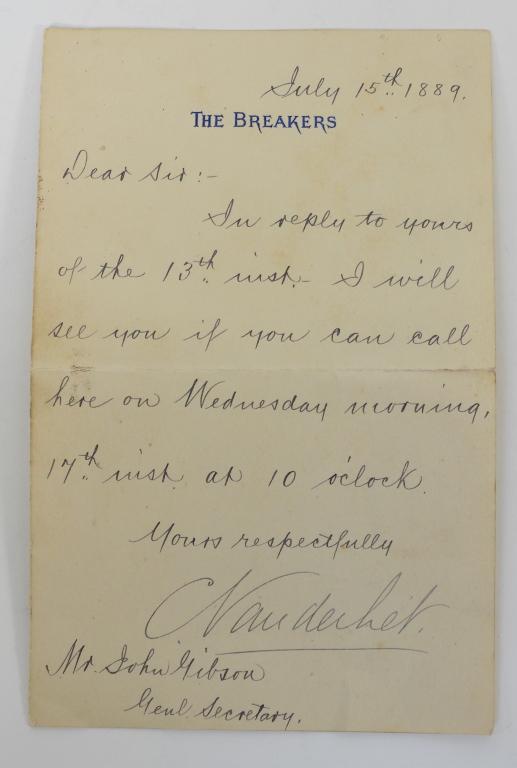 July 15th 1889.
THE BREAKERS
Dear Sir:-
In reply to yours
of the 13th inst.- I will
see you if you can call
here on Wednesday morning,
17th inst. at 10 o'clock.
Yours respectfully
CVanderbilt.
Mr. John Gibson
Genl. Secretary.